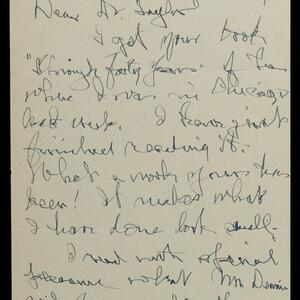 Dear Dr. Taylor
I got your book
"Through Forty Years" of
when I was in Chicago
last week. I have just
finished reading it.
What a work yours has
been! It makes what
I have done look small.
I read with special
pleasure what Mr